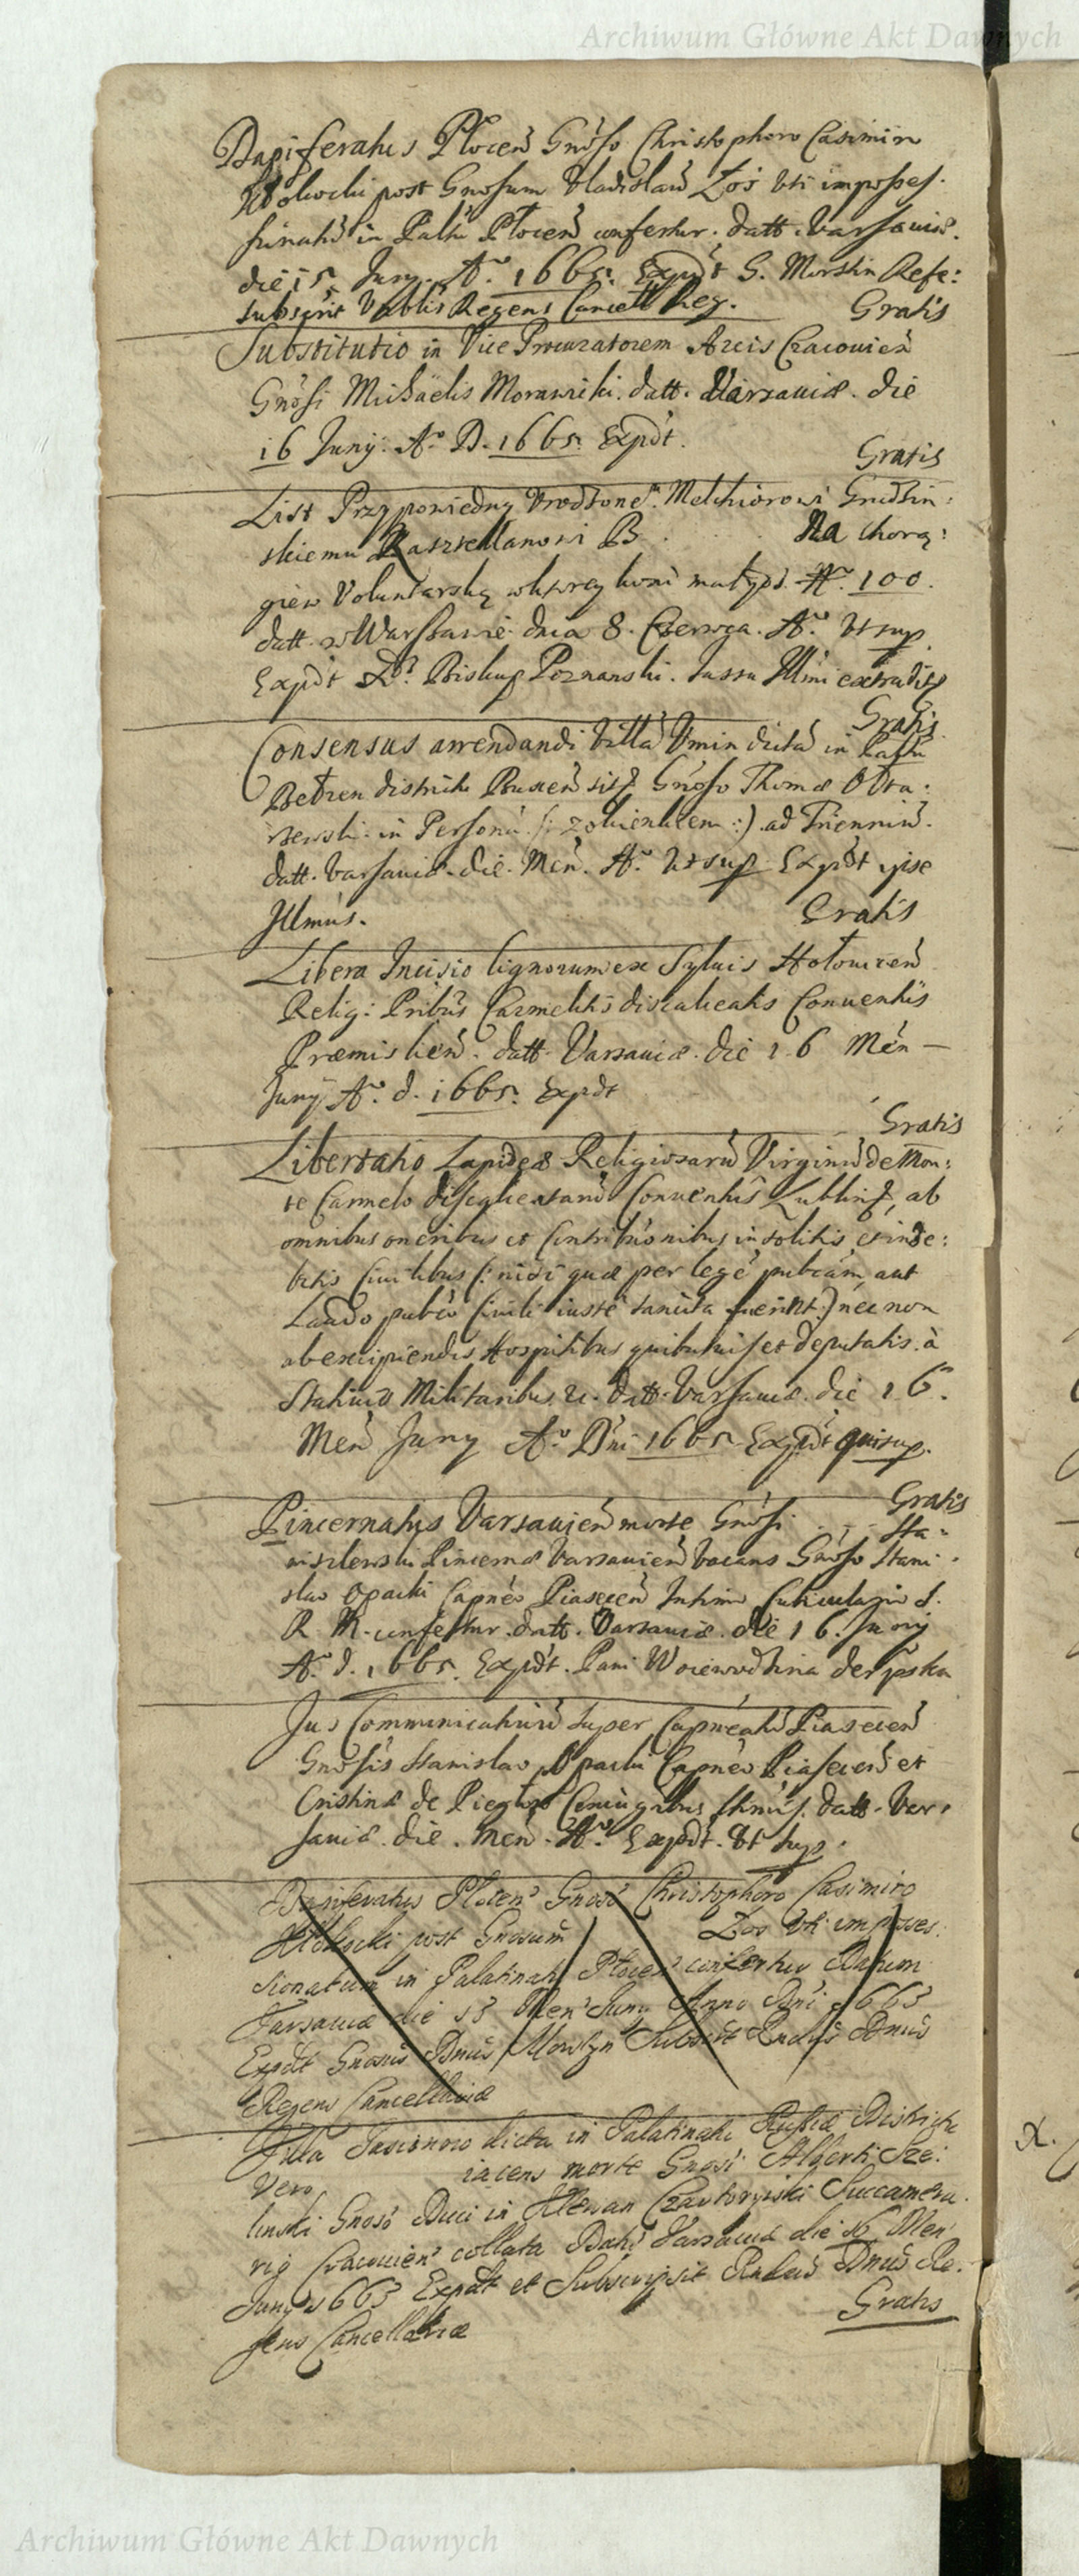 Archiwum Główne Akt Dawnych
Dapiferatus Plocen Gnoso Christophoro Casimiro
post Gnosum Vladislau Łoś Uti imposses.
sionatu in Paltu Plocen confertur. datt. Varsaviæ.
die 15 Juny. Ao. 1665. Expdt G. Morstin Refe:
subscrit Nobilis Regens Cancell Reg. Gratis
Substitutio in Vice Procuratorem Arcis Cracovien
Gnosi Michaelis Morawski. datt. Varsaviæ. die
16 Junij. Ao. D. 1665. Expdt.
Gratis
List Przypowiedny Urodzone. Melchiorowi Grudzin:
skiemu Kasztellanowi B . . . Na chorą:
giew Voluntarską w ktorey koni ma byds. No. 100.
datt. w Warszawie dnia 8. Czerwca. Ao. Ut sup.
Expdt X. Biskup Poznanski. Jussu Illmi extradit
Gratis
Consensus arrendandi Villa Umin dicta in Paltu
Belzen districtu Buscen Gnoso Thomæ
in Persona ad Trienniu.
datt. Varsaviæ. die. Men. Ao. Ut sup Expdt ipse
Illmus. Gratis
Libera Incisio lignorum ex Sylvis
Relig: Pribus Carmelitis discalceatis Conventus
Præmislien. datt. Varsaviæ. die 16 Men —
Juny Ao. d. 1665. Expdt
Gratis
Libertatio Lapideæ Religiosaru Virginu de Mon:
te Carmelo discalceataru Conventus Lublin, ab
omnibus oneribus et Contributionibus insolitis, et inde:
bitis Civilibus (: nisi quæ per lege publicam, aut
Laudo publco Civili iuste sancita fuerint :) nec non
ab excipiendis Hospitibus quibusuis et deputatis. à
Stativis Militaribus. &. datt. Varsaviæ. die 16.
Men Juny Ao. Dni 1665 Expdt qui sup.
Gratis
Pincernatus Varsavien morte Gnosi . . - Sta=
Pincernæ Varsavien vacans Gnoso Stani.
slao Opacki Capneo Piasecen Intimo Cubiculario S.
R. M. confertur. datt. Varsaviæ. die 16. Juny
Ao. d. 1665. Expdt. Pani Woiewodzina
Jus Communicatiuu super Capneatu Piasecen
Gnosis Stanislao Opacki Capneo Piasecen et
Cristinæ de Coniugibus datt. Var.
saviæ. die. Men. Ao. Expdt. Ut sup.
Dapiferatus Plocen Gnoso Christophoro Casimiro
post Gnosum Łos Uti imposses.
sionatum in Palatinatu Plocen confertur Datum
Varsaviæ die 15 Men Juny Anno Dni 1665
Expdt Gnosus Dnus Morstyn Subscrit Dnus
Regens Cancellariæ
Villa dicta in Palatinatu Russiæ Districtu
Vero iacens morte Gnosi Alberti Sze:
linski Gnoso Duci in Klewan Czartoryiski Succamera.
rio Cracovien collata Dat Varsaviæ die 16 Men
Juny 1665 Expdt et Subscripsit Dnus Re.
gens Cancellariæ Gratis
X.
Archiwum Główne Akt Dawnych